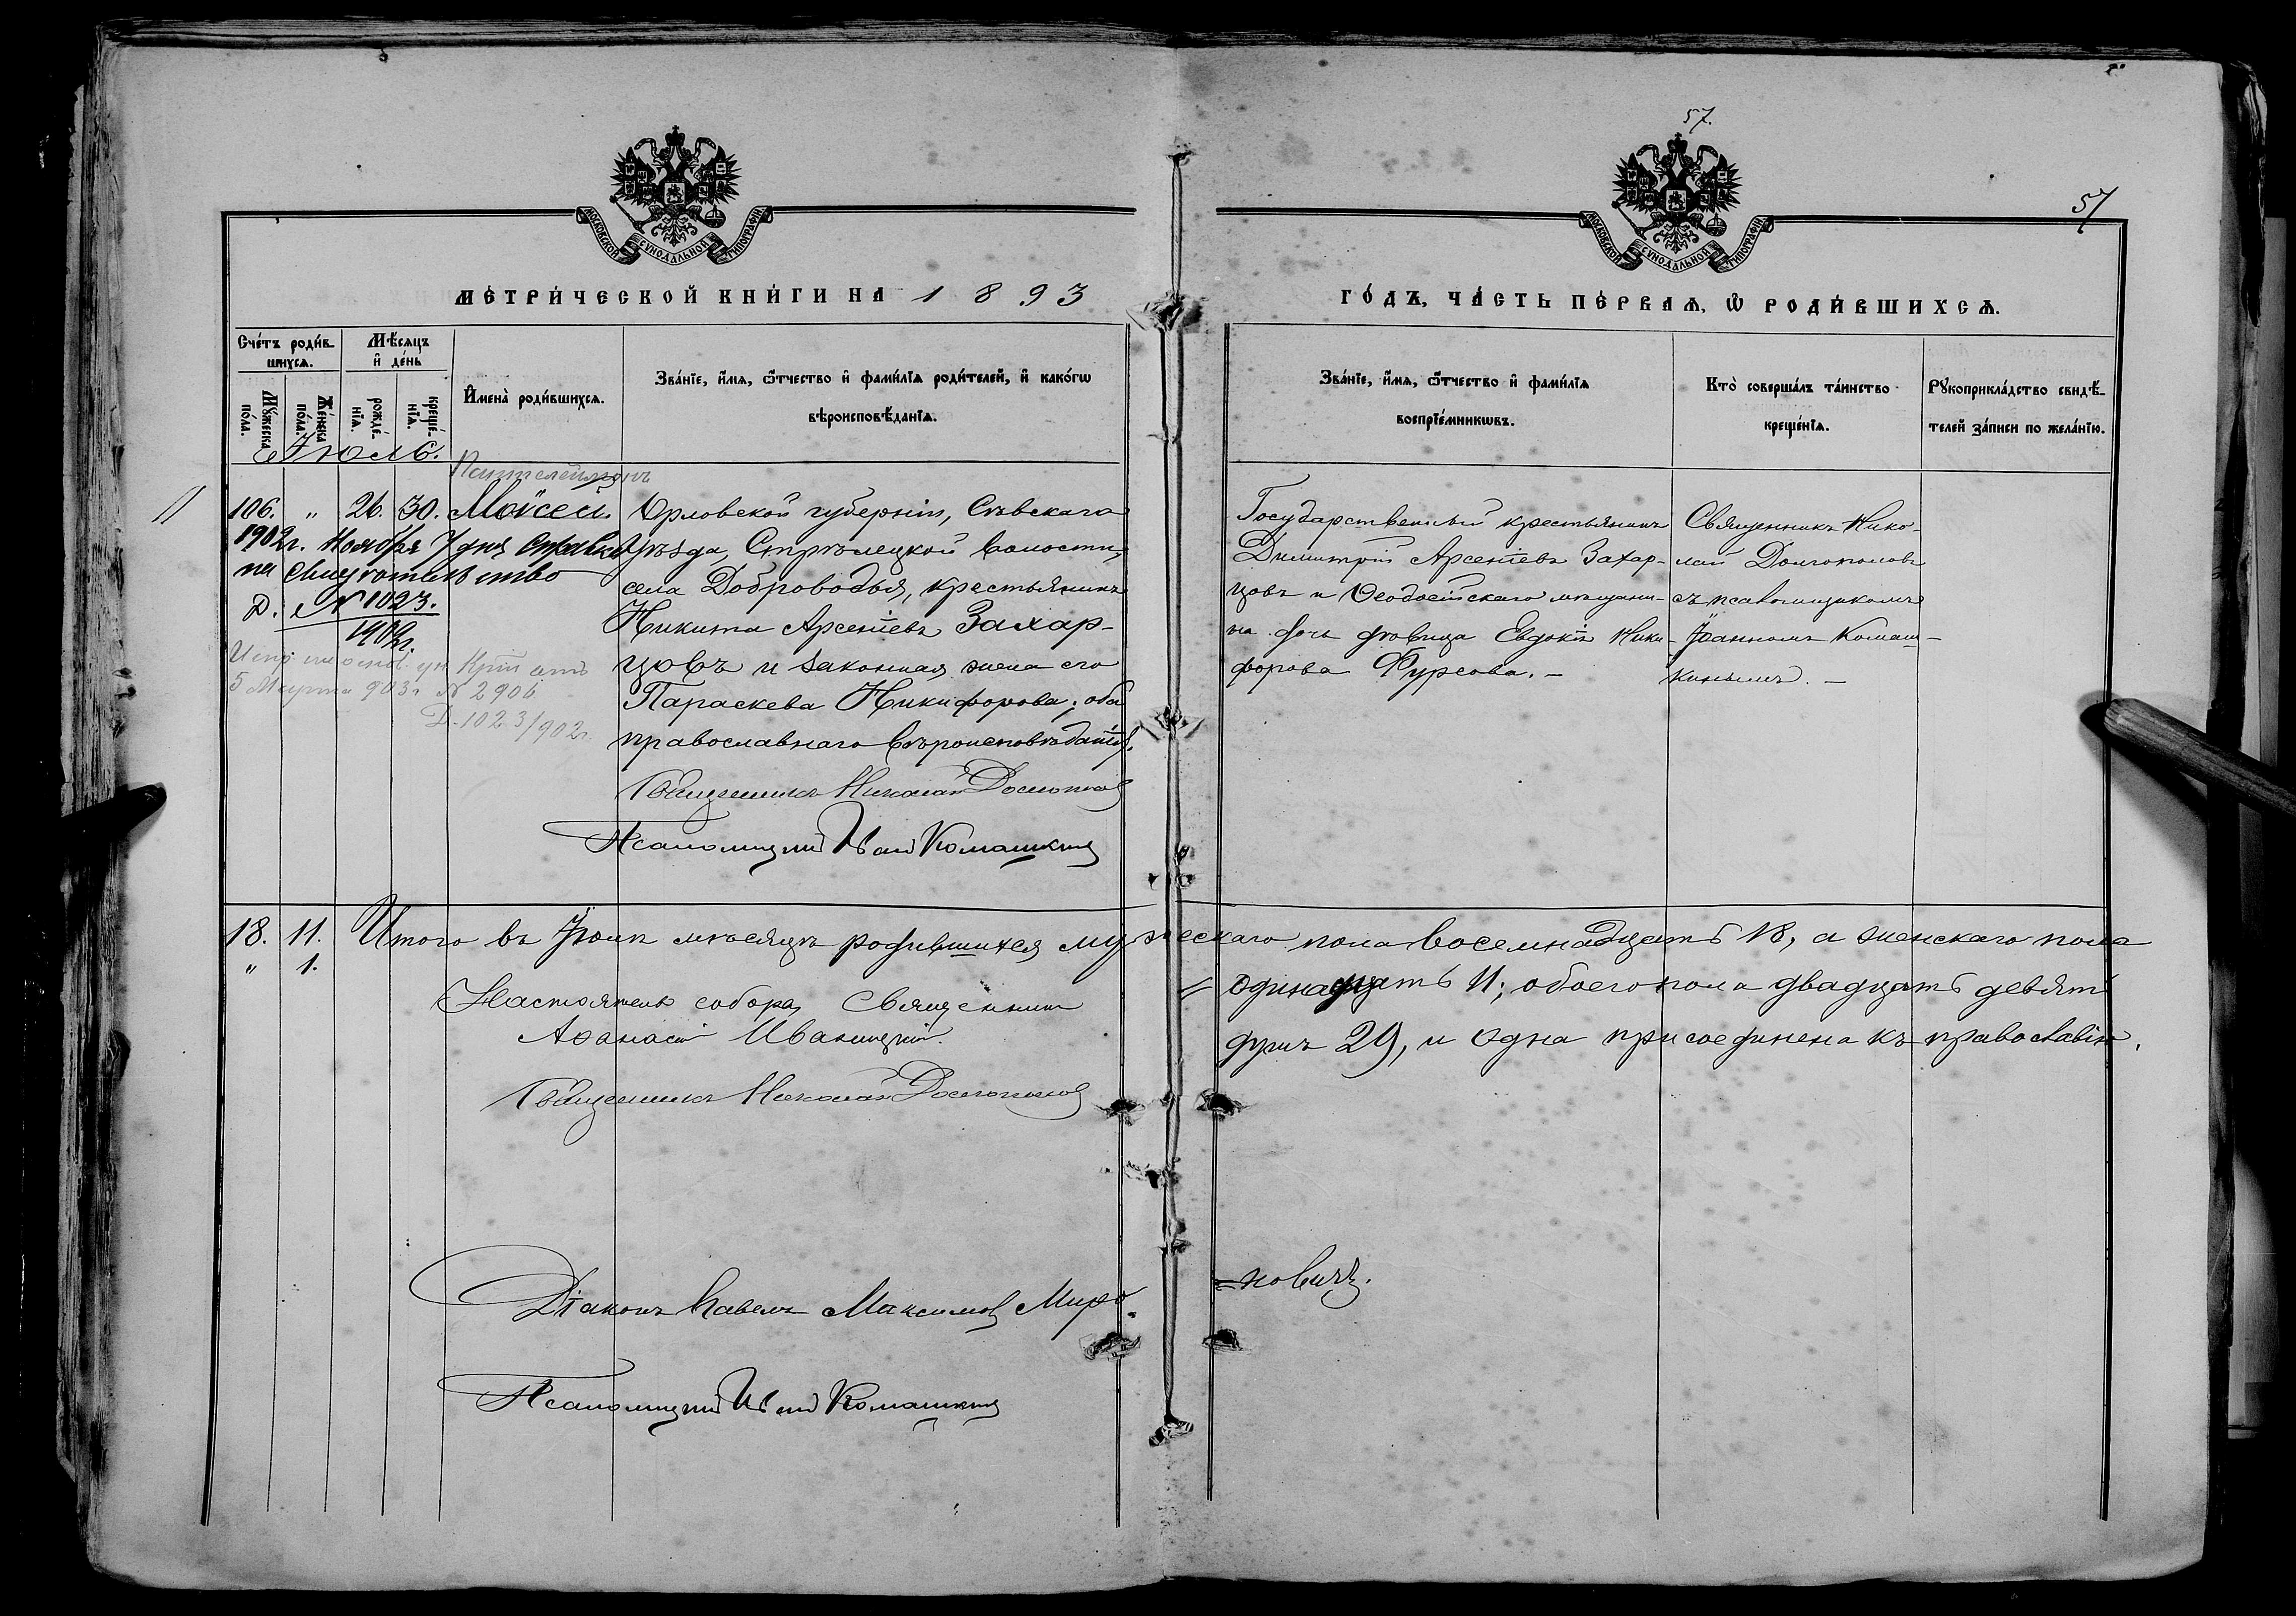 57.
57
МОСКОВСКОЙ СѴНОДАЛЬНОЙ ТИПОГРАФІИ
МОСКОВСКОЙ СѴНОДАЛЬНОЙ ТИПОГРАФІИ
МЕ́ТРИ́ЧЕСКОЙ КНИ́ГИ НА 1893
ГО́ДЪ, ЧА́СТЬ ПЕ́РВАѦ, Ѿ РОДИ́ВШИХСѦ.
Сче́тъ роди́в-
шихся.
Му́жеска по́ла.
Же́нска по́ла.
Мѣ́сяцъ
и҆ де́нь
рожде́-
нїя.
креще́-
нїя.
И҆мена̀ роди́вшихся.
Зва́нїе, и҆́мя, ѻ҆́тчество и҆ фами́лїя роди́телей, и҆ како́гѡ
вѣроисповѣ́данїя.
Зва́нїе, и҆́мя, ѻ҆́тчество и҆ фами́лїя
воспрїе́мникѡвъ.
Кто̀ соверша́лъ та́инство
креще́нїя.
Рꙋкоприкла́дство свидѣ́-
телей за́писи по жела́нїю.
Іюль.
Пантелеимонъ
106. " 26. 30. Моѵсей.
1902г. Ноября 7 дня справка
на
Д. № 1023.
1902г.
5 Марта 903г № 2906
Д-1023/902г.
Орловской губерніи, Сѣвскаго
Уѣзда, Стрѣлецкой Волости,
села Доброводья, крестьянинъ
Никита Арсеніевъ Захар-
цовъ и законная жена его
Параскева Никифорова; оба
православнаго вѣроисповѣданія.
Священникъ Николай Долгополов
Псаломщикъ Иван Комашкин
Государственный крестьянинъ
Димитрій Арсеніевъ Захар-
цовъ и Ѳеодосійскаго мѣщани-
на дочь дѣвица Евдокія Ники-
форова Фурсова. –
Священникъ Нико-
лай Долгополовъ
съ псаломщикомъ
Іоанномъ Комаш-
кинымъ. –
18. 11. Итого въ Іюлѣ мѣсяцѣ родившихся мужескаго пола восемнадцать 18, а женскаго пола
" 1.
= одинадцать 11; обоего пола двадцать девять
душъ 29, и одна присоединена къ православію.
Настоятель собора, Священник
Аѳанасій Иваницкій.
Священникъ Николай Долгополов
Діаконъ Павелъ Максимов Миро-
=новичъ.
Псаломщикъ Иван Комашкин